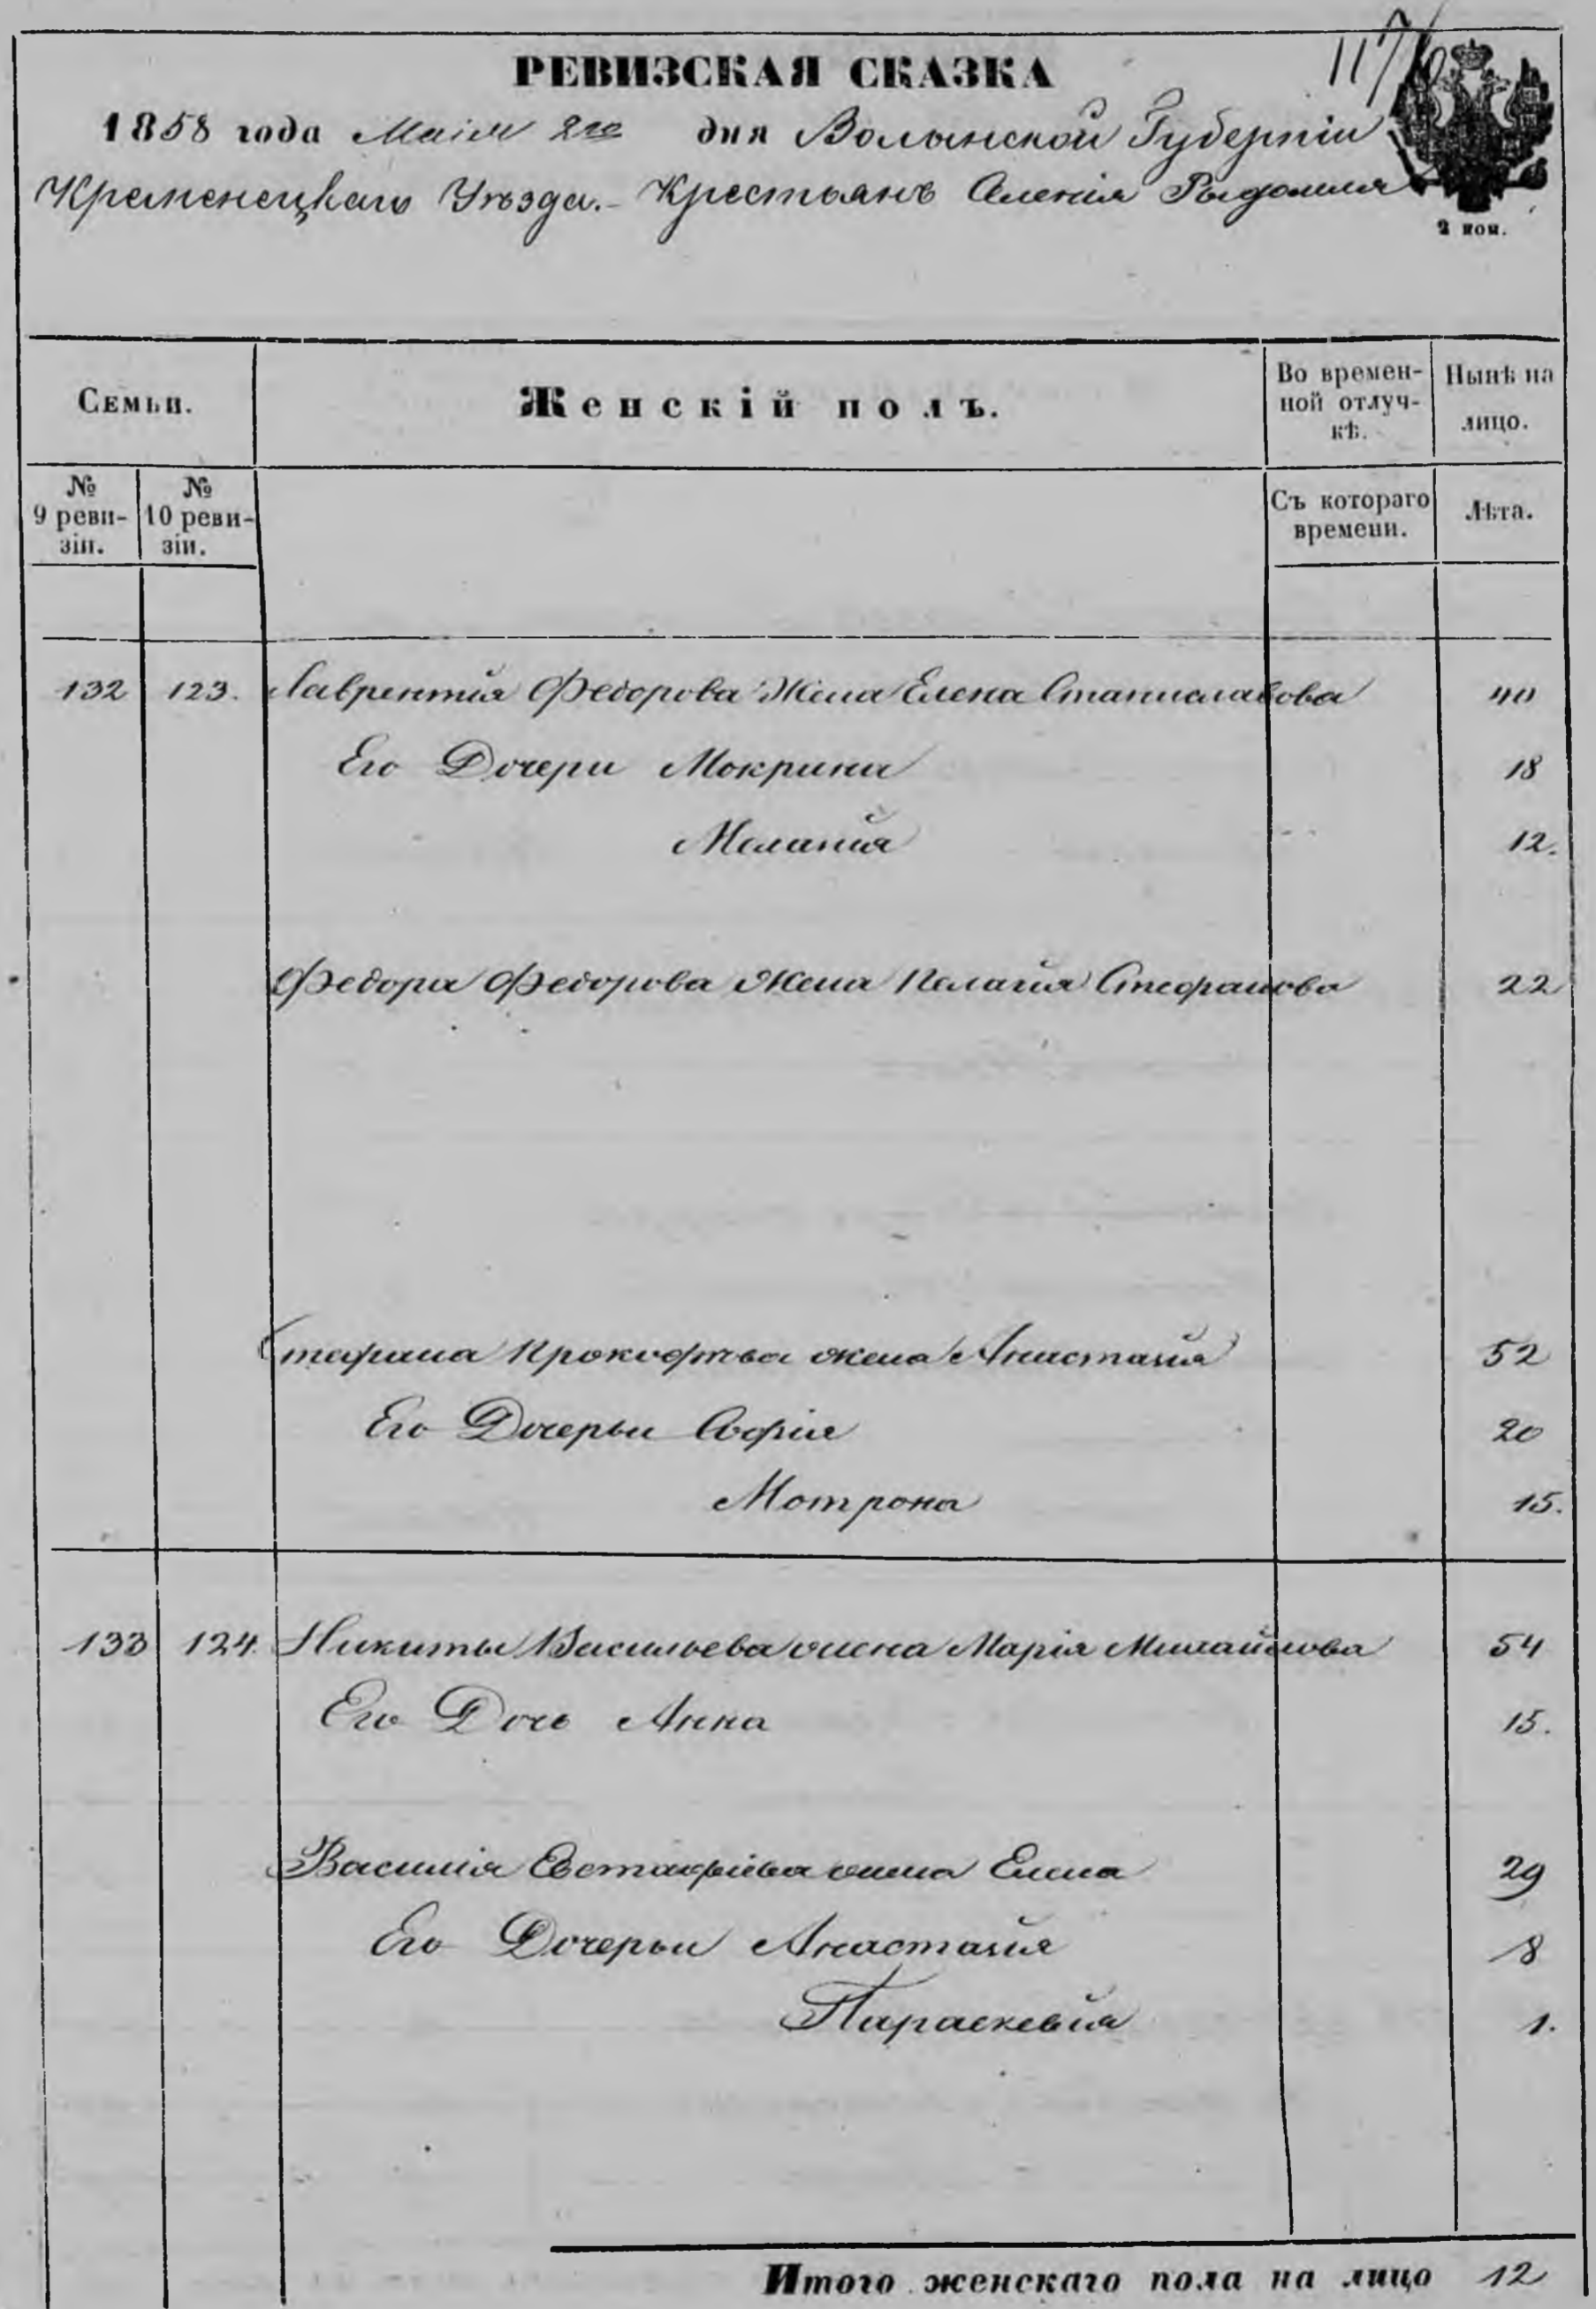 117/6
РЕВИЗСКАЯ СКАЗКА
1858 года Маія 2го дня Волынской Губерніи
Кременецкаго Уѣзда.- Крестьянъ Селенія Рыдомля
2 коп.
Семьи. Женскій полъ. Во времен-ной отлуч-кѣ. Нынѣ на лицо.
№ 9 реви-зіи. № 10 реви-зіи. Съ котораго времени. Лѣта.
132 123. Лаврентія Федорова Жена Елена Станиславова 40
Его Дочери Мокрина 18
Меланія 12.
Федора Федорова Жена Пелагія Стефанова 22
Стефана Прокофьева жена Анастасія 52
Его Дочерьи Софія 20
Мотрона 15.
133 124. Никиты Васильева жена Марія Михайлова 54
Его Дочь Анна 15.
Василія Евстафіева жена Елена 29
Его Дочерьи Анастасія 8
Параскевія 1.
Итого женскаго пола на лицо 12